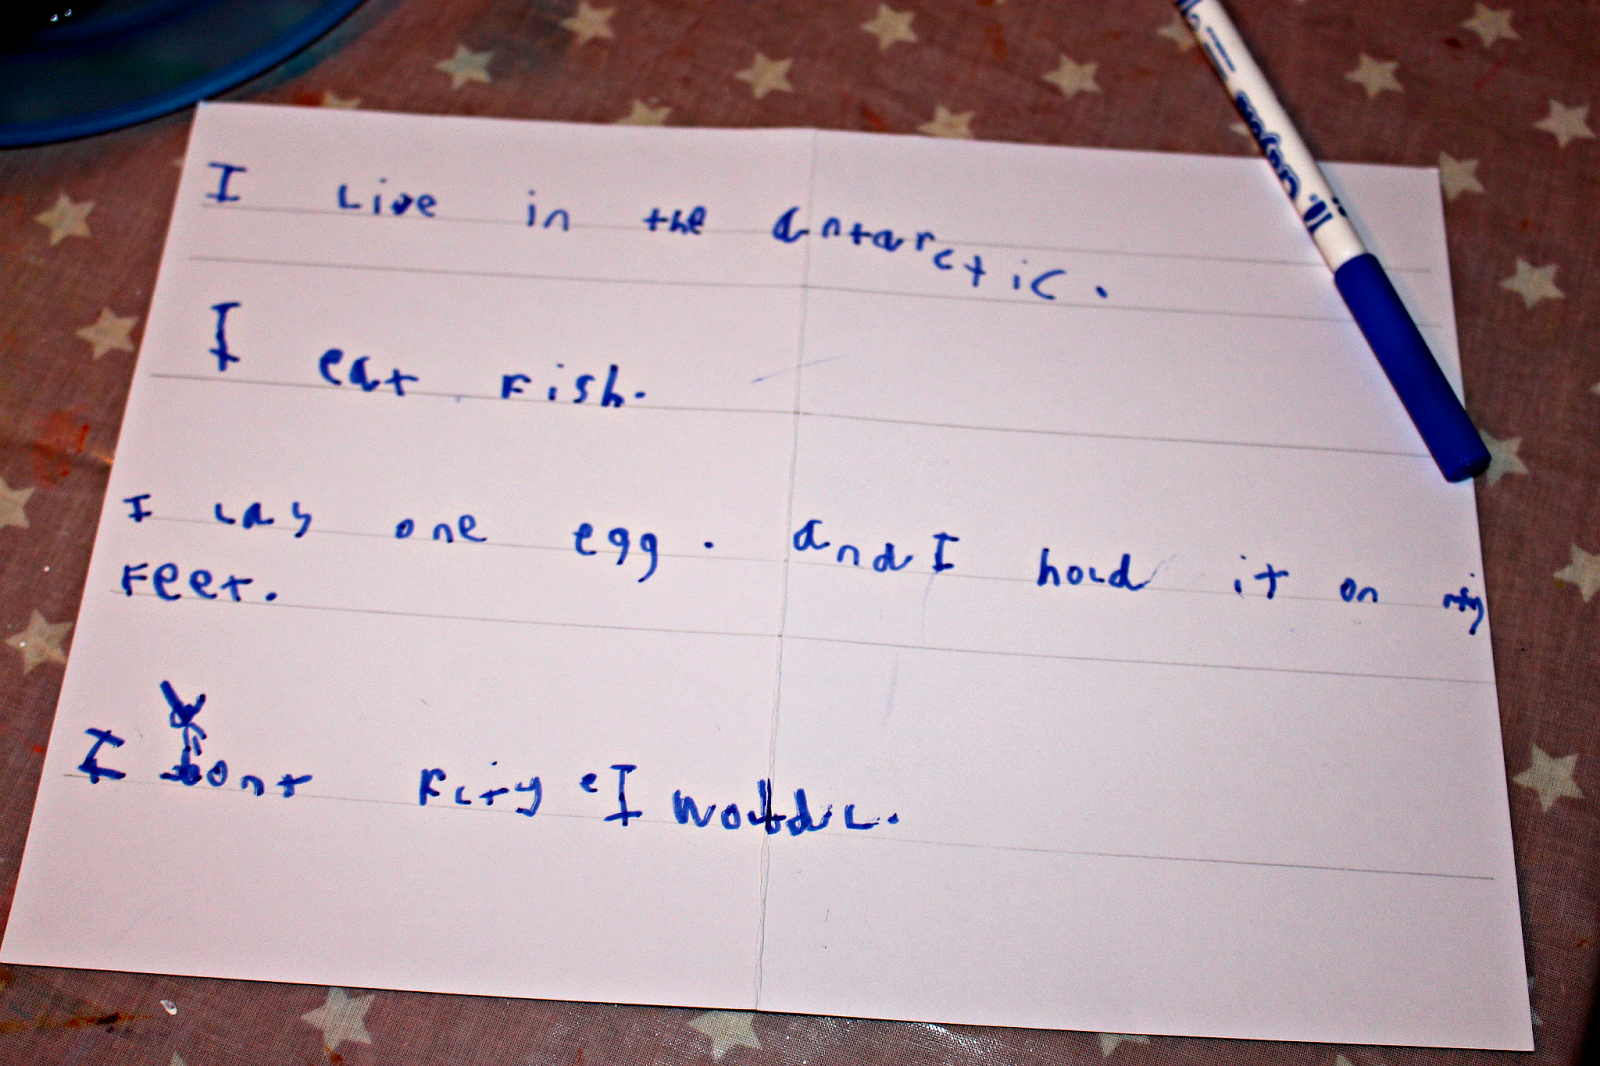 I Live in the antarctic.
I eat Fish.
I Lay one egg. and I hold it on my
Feet.
I dont FLty I waddL.
Crayola